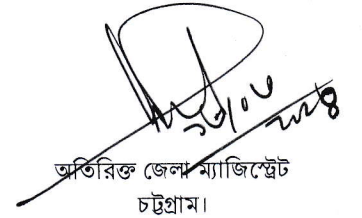 অতিরিক্ত জেলা ম্যাজিস্ট্রেট
চট্টগ্রাম।